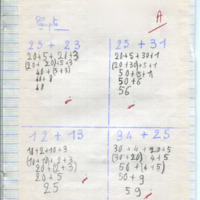 A
25 + 23
20+5+20+3
(20+20)+5+3
40+(5+3)
40+8
48
25 + 31
20+5+30+1
(20+30)+5+1
50+(5+1)
50+6
56
12 + 13
10+2+10+3
(10+10)+2+3
20+(2+3)
20+5
25
34 + 25
30+4+20+5
(30+20)+4+5
50+9
59